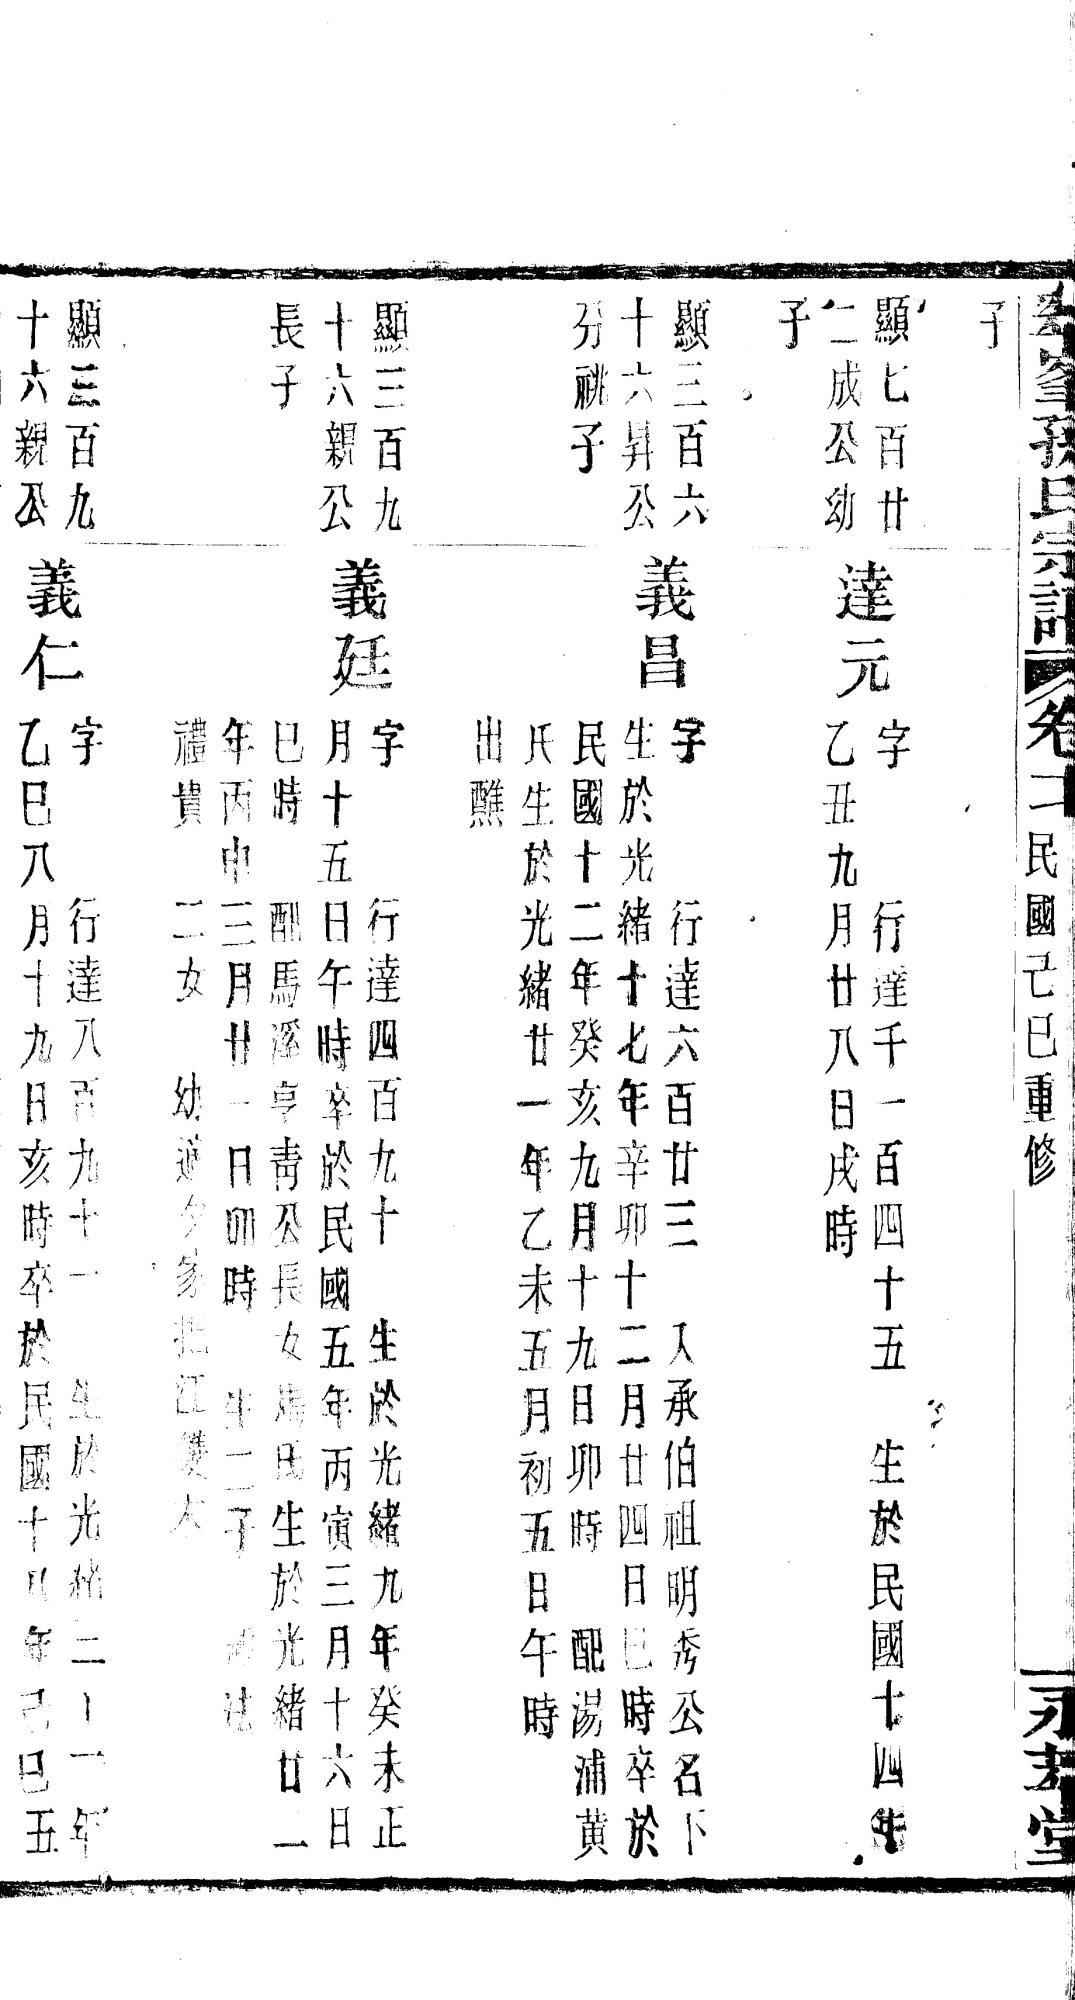 孫氏宗譜
卷
民國己巳重修
堂
子
顯七百廿
二成公幼
子
達元
字 行達千一百四十五 生於民國十四年
乙丑九月廿八日戌時
顯三百六
十六昇公
分祧子
義昌
字 行達六百廿三 入承伯祖明秀公名下
生於光緒十七年辛卯十二月廿四日巳時卒於
民國十二年癸亥九月十九日卯時 配湯浦黄
氏生於光緒廿一年乙未五月初五日午時
出醮
顯三百九
十六親公
長子
義廷
字 行達四百九十 生於光緒九年癸未正
月十五日午時卒於民國五年丙寅三月十六日
巳時 配馬溪亨青公長女馮氏生於光緒廿二
年丙申三月廿一日卯時 生二子
禮貴 二女 幼適
顯三百九
十六親公
義仁
字 行達八百九十一 生於光緒三十一年
乙巳八月十九日亥時卒於民國十八年己巳五